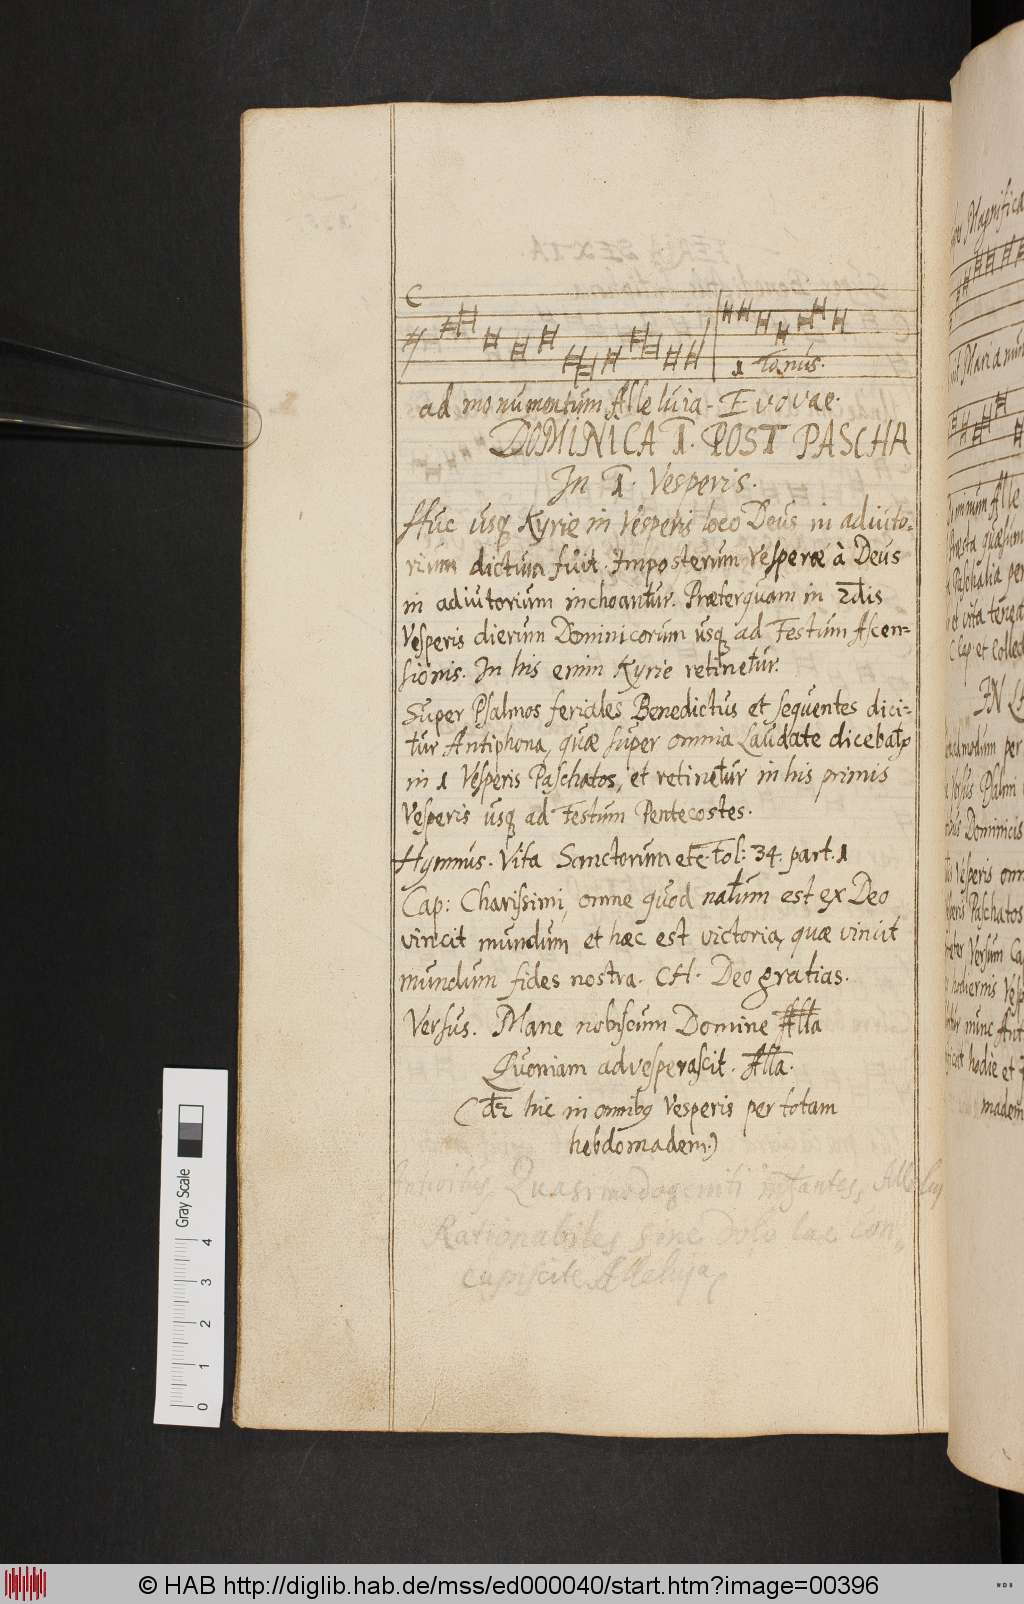 C
1 Tonus.
ad monumentum Alleluia. Evovae.
DOMINICA I. POST PASCHA
In I. Vesperis.
Huc usq Kyrie in Vesperis loco Deus in adiuto=
rium dictum fuit. Imposterum Vesperæ à Deus
in adiutorium inchoantur. Præterquam in 2dis
Vesperis dierum Dominicorum usq ad Festum Ascen=
sionis. In his enim Kyrie retinetur.
Super Psalmos feriales Benedictus et sequentes dici=
tur Antiphona, quæ super omnia Laudate dicebatr
in 1 Vesperis Paschatos, et retinetur in his primis
Vesperis usq ad Festum Pentecostes.
Hymnus. Vita Sanctorum etc. Fol: 34. part. 1
Cap: Charissimi, omne quod natum est ex Deo
vincit mundum, et hæc est victoria, quæ vincit
mundum fides nostra. CH. Deo gratias.
Versus. Mane nobiscum Domine Alla
Quoniam advesperascit. Alla.
(dr hic in omnibq Vesperis per totam
hebdomadem.)
Quasimodogeniti infantes, Allelu
Rationabiles sine dolo lac con,,
cupiscite Alleluja,
Magnifica
Maria
minum Alle
Paschalia per
et vita
Cap. et Collec
IN
modum per
Psalmi
Dominicis
Vesperis om
Paschatos
Versum Ca
hodiernis Ves
nunc Ant
hodie et
madem
Gray Scale
0 1 2 3 4
© HAB http://diglib.hab.de/mss/ed000040/start.htm?image=00396